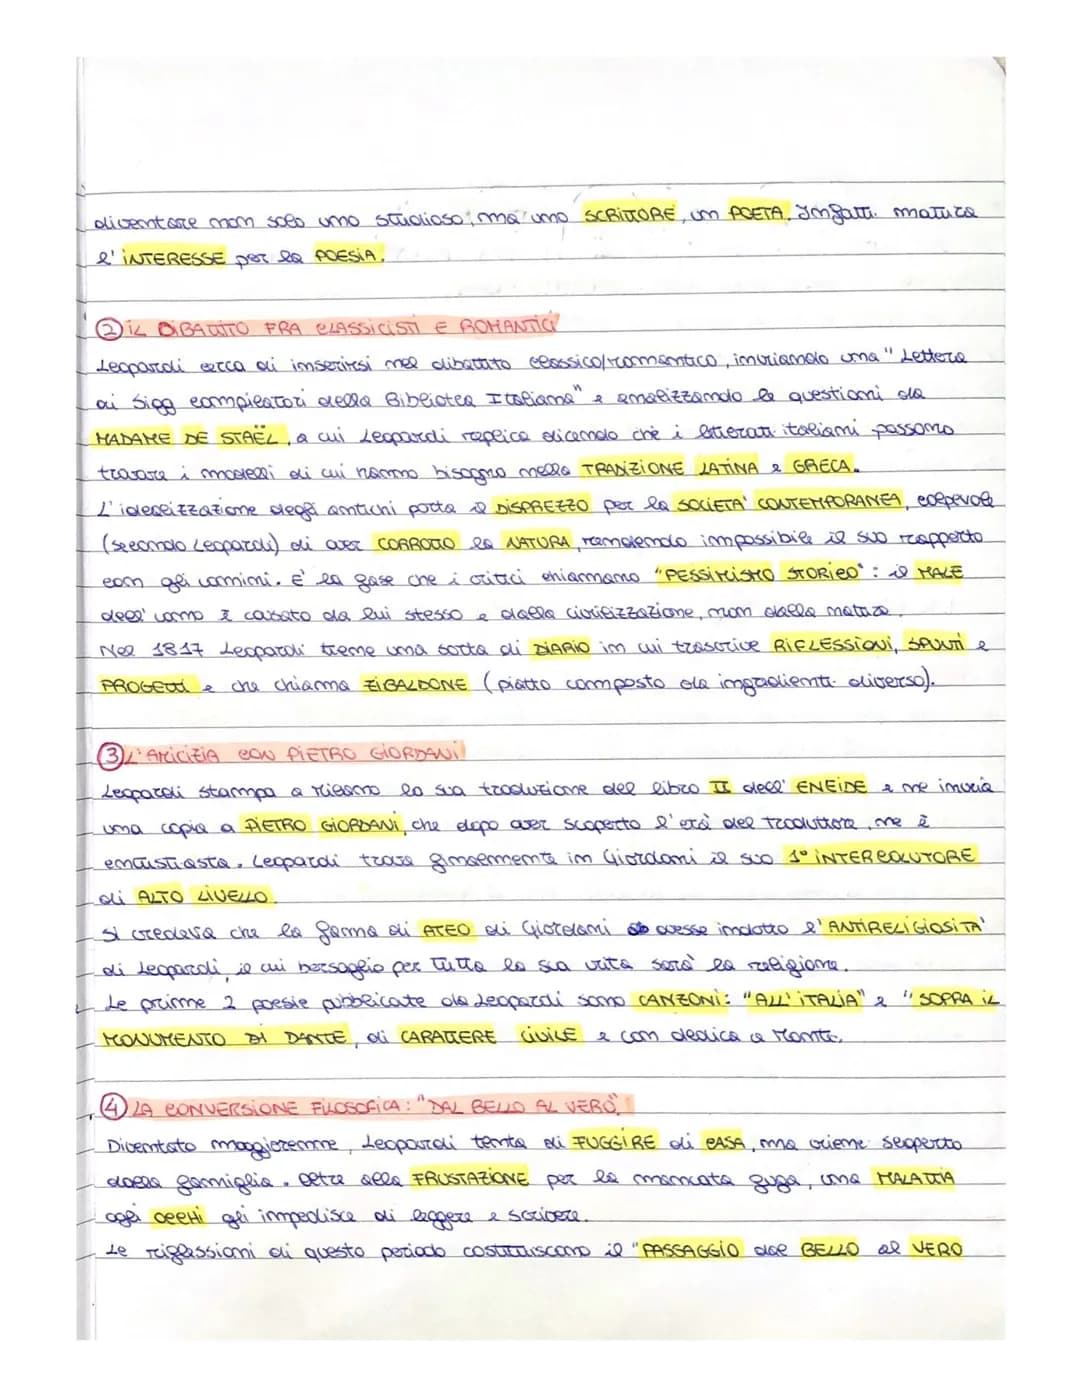 diventare non solo uno studioso, ma uno SCRITTORE, un POETA. Infatti matura
l'INTERESSE per la POESIA.
② IL DIBATTITO FRA CLASSICISTI E ROMANTICI
Leopardi cerca di inserirsi nel dibattito classico/romantico, inviando una "Lettera
ai Sigg compilatori della Bibliotea Italiana" e analizzando le questioni da
MADAME DE STAËL, a cui Leopardi replica dicendo che i letterati italiani possono
trovare i modelli di cui hanno bisogno nella TRADIZIONE LATINA e GRECA.
L'idealizzazione degli antichi porta il DISPREZZO per la SOCIETA' CONTEMPORANEA, colpevole
(secondo Leopardi) di aver CORROTTO la NATURA, rendendo impossibile il suo rapporto
con gli uomini. E' la fase che i critici chiamano "PESSIMISMO STORICO": il MALE
dell'uomo è causato da lui stesso e dalla civilizzazione, non dalla natura.
Nel 1817 Leopardi tiene una sorta di DIARIO in cui trascrive RIFLESSIONI, SPUNTI e
PROGETTI e che chiama ZIBALDONE (piatto composto da ingredienti diverso).
③ L'AMICIZIA CON PIETRO GIORDANI
Leopardi stampa a Milano la sua traduzione del libro II dell'ENEIDE e ne invia
una copia a PIETRO GIORDANI, che dopo aver scoperto l'età del traduttore, ne è
entusiasta. Leopardi trova finalmente in Giordani il suo 1° INTERLOCUTORE
di ALTO LIVELLO.
Si credeva che la fama di ATEO di Giordani avesse indotto l'ANTIRELIGIOSITA'
di Leopardi, il cui bersaglio per tutta la sua vita sarà la religione.
Le prime 2 poesie pubblicate da Leopardi sono CANZONI: "ALL'ITALIA" e "SOPRA IL
MONUMENTO DI DANTE, di CARATTERE CIVILE e con dedica a Monti.
④ LA CONVERSIONE FILOSOFICA: "DAL BELLO AL VERO"
Diventato maggiorenne, Leopardi tenta di FUGGIRE di CASA, ma viene scoperto
dalla famiglia. Oltre alla FRUSTAZIONE per la mancata fuga, una MALATTIA
agli OCCHI gli impedisce di leggere e scrivere.
Le riflessioni di questo periodo costituiscono il "PASSAGGIO dal BELLO al VERO